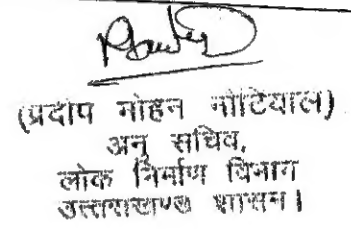 (प्रदीप मोहन नौटियाल)
अनु सचिव,
लोक निर्माण विभाग
उत्तराखण्ड शासन।